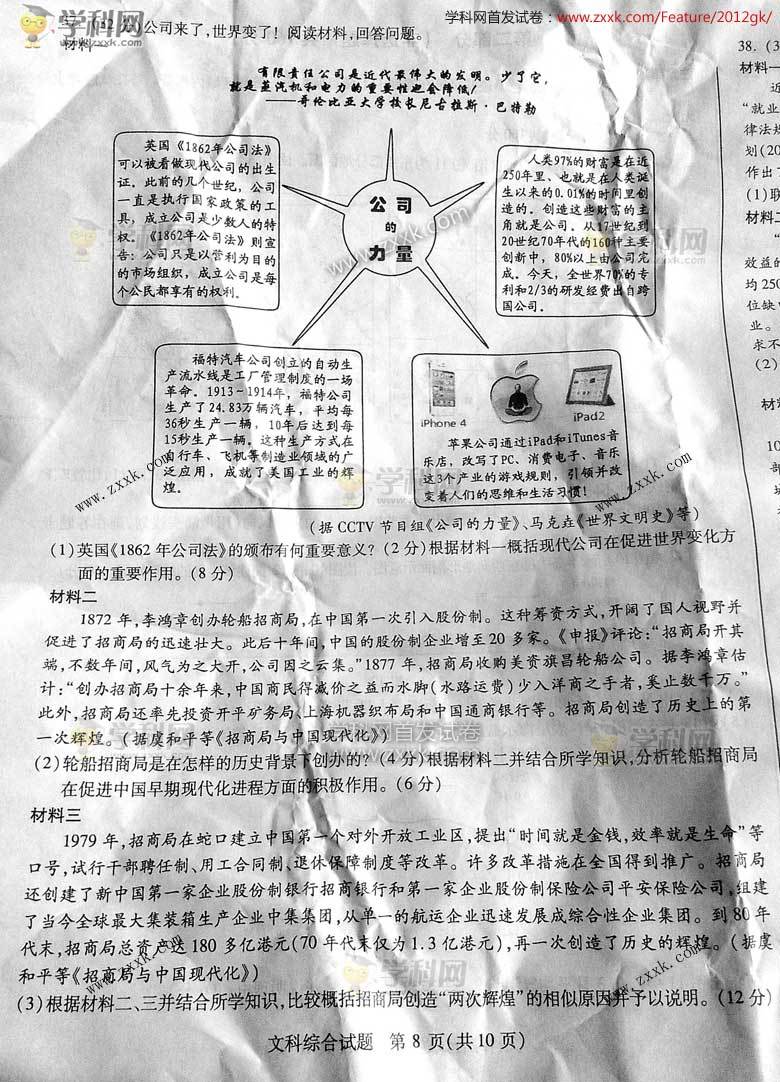 学科网首发试卷：www.zxxk.com/Feature/2012gk/
公司来了，世界变了！阅读材料，回答问题。
材料一
有限责任公司是近代最伟大的发明。少了它，
就是蒸汽机和电力的重要性也会降低！
——哥伦比亚大学校长尼古拉斯·巴特勒
英国《1862年公司法》
可以被看做现代公司的出生
证。此前的几个世纪，公司
一直是执行国家政策的工
具，成立公司是少数人的特
权。《1862年公司法》则宣
告：公司只是以营利为目的
的市场组织，成立公司是每
个公民都享有的权利。
公司
的
力量
人类97%的财富是在近
250年里、也就是在人类诞
生以来的0.01%的时间里创
造的。创造这些财富的主
角就是公司。从17世纪到
20世纪70年代的160种主要
创新中，80%以上由公司完
成。今天，全世界70%的专
利和2/3的研发经费出自跨
国公司。
福特汽车公司创立的自动生
产流水线是工厂管理制度的一场
革命。1913~1914年，福特公司
生产了24.83万辆汽车，平均每
36秒生产一辆，10年后达到每
15秒生产一辆。这种生产方式在
自行车、飞机等制造业领域的广
泛应用，成就了美国工业的辉
煌。
iPhone 4
iPad2
苹果公司通过iPad和iTunes音
乐店，改写了PC、消费电子、音乐
这3个产业的游戏规则，引领并改
变着人们的思维和生活习惯！
（据CCTV节目组《公司的力量》、马克垚《世界文明史》等）
(1)英国《1862年公司法》的颁布有何重要意义？(2分)根据材料一概括现代公司在促进世界变化方
面的重要作用。(8分)
材料二
1872年，李鸿章创办轮船招商局，在中国第一次引入股份制。这种筹资方式，开阔了国人视野并
促进了招商局的迅速壮大。此后十年间，中国的股份制企业增至20多家。《申报》评论：“招商局开其
端，不数年间，风气为之大开，公司因之云集。”1877年，招商局收购美资旗昌轮船公司。据李鸿章估
计：“创办招商局十余年来，中国商民得减价之益而水脚(水路运费)少入洋商之手者，奚止数千万。”
此外，招商局还率先投资开平矿务局、上海机器织布局和中国通商银行等。招商局创造了历史上的第
一次辉煌。(据虞和平等《招商局与中国现代化》)
(2)轮船招商局是在怎样的历史背景下创办的？(4分)根据材料二并结合所学知识，分析轮船招商局
在促进中国早期现代化进程方面的积极作用。(6分)
材料三
1979年，招商局在蛇口建立中国第一个对外开放工业区，提出“时间就是金钱，效率就是生命”等
口号，试行干部聘任制、用工合同制、退休保障制度等改革。许多改革措施在全国得到推广。招商局
还创建了新中国第一家企业股份制银行招商银行和第一家企业股份制保险公司平安保险公司，组建
了当今全球最大集装箱生产企业中集集团，从单一的航运企业迅速发展成综合性企业集团。到80年
代末，招商局总资产达180多亿港元(70年代末仅为1.3亿港元)，再一次创造了历史的辉煌。(据虞
和平等《招商局与中国现代化》)
(3)根据材料二、三并结合所学知识，比较概括招商局创造“两次辉煌”的相似原因并予以说明。(12分)
文科综合试题 第8页(共10页)
38.(3
材料一
近
“就业
律法规
划(20
作出了
(1)联
材料二
效益的
均250
位缺
业。
求不
(2)
材料
10
部
城
学科网
www.zxxk.com
学科网首发试卷